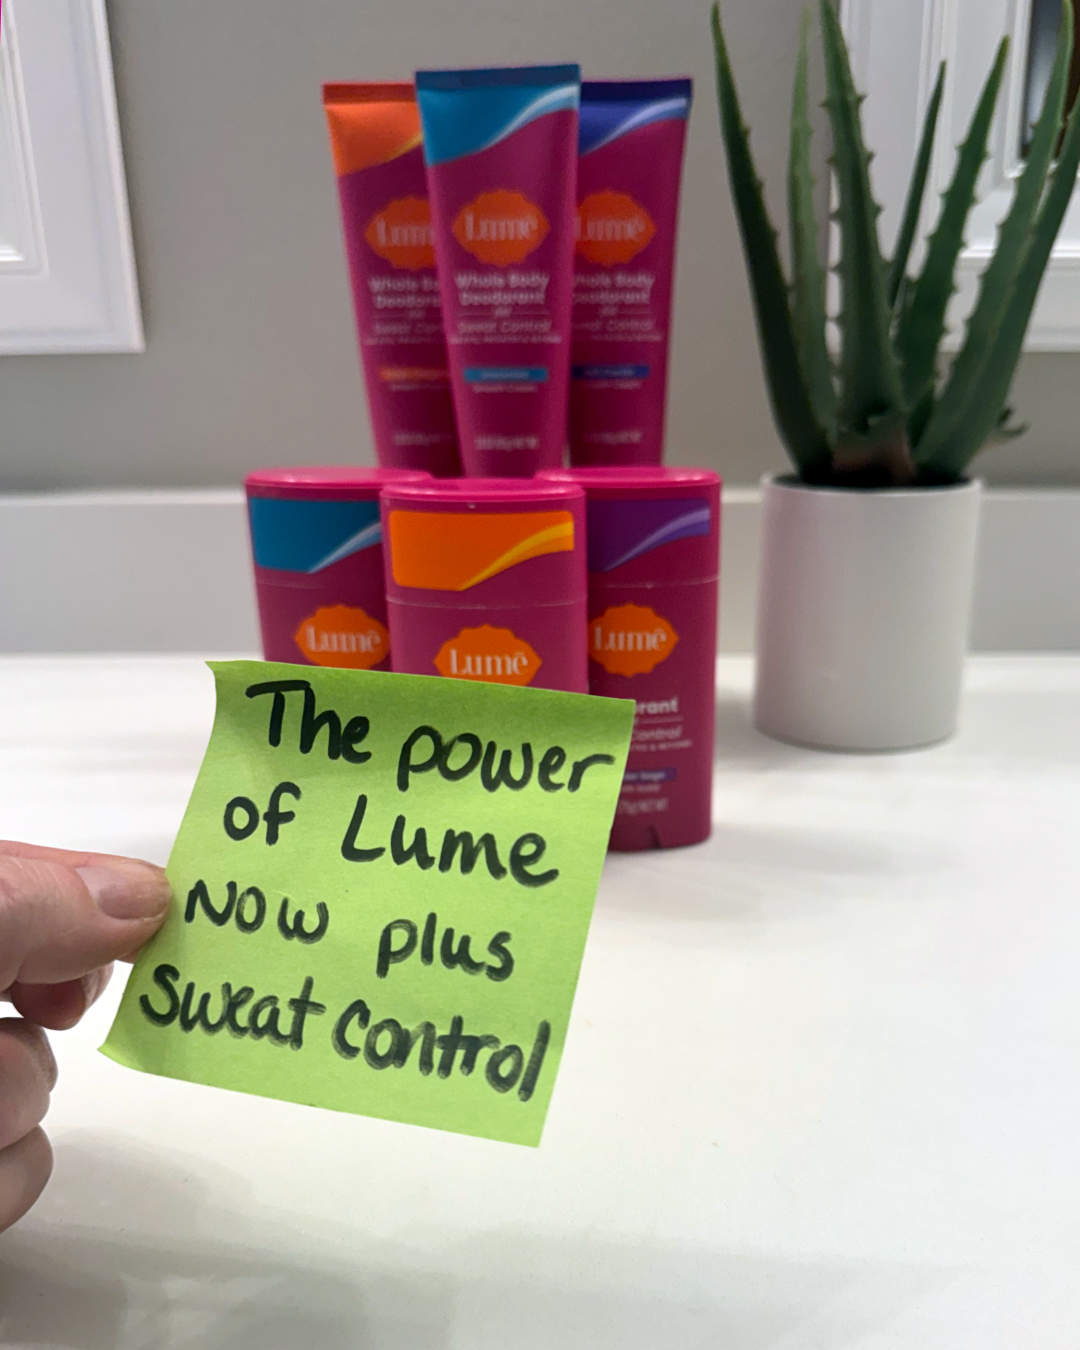 Lumē
Whole Body
Deodorant
Sweat Control
Lumē
Whole Body
Deodorant
Sweat Control
Lumē
Whole Body
Deodorant
Sweat Control
Lumē
Lumē
Lumē
Control
The power
of Lume
Now plus
Sweat Control